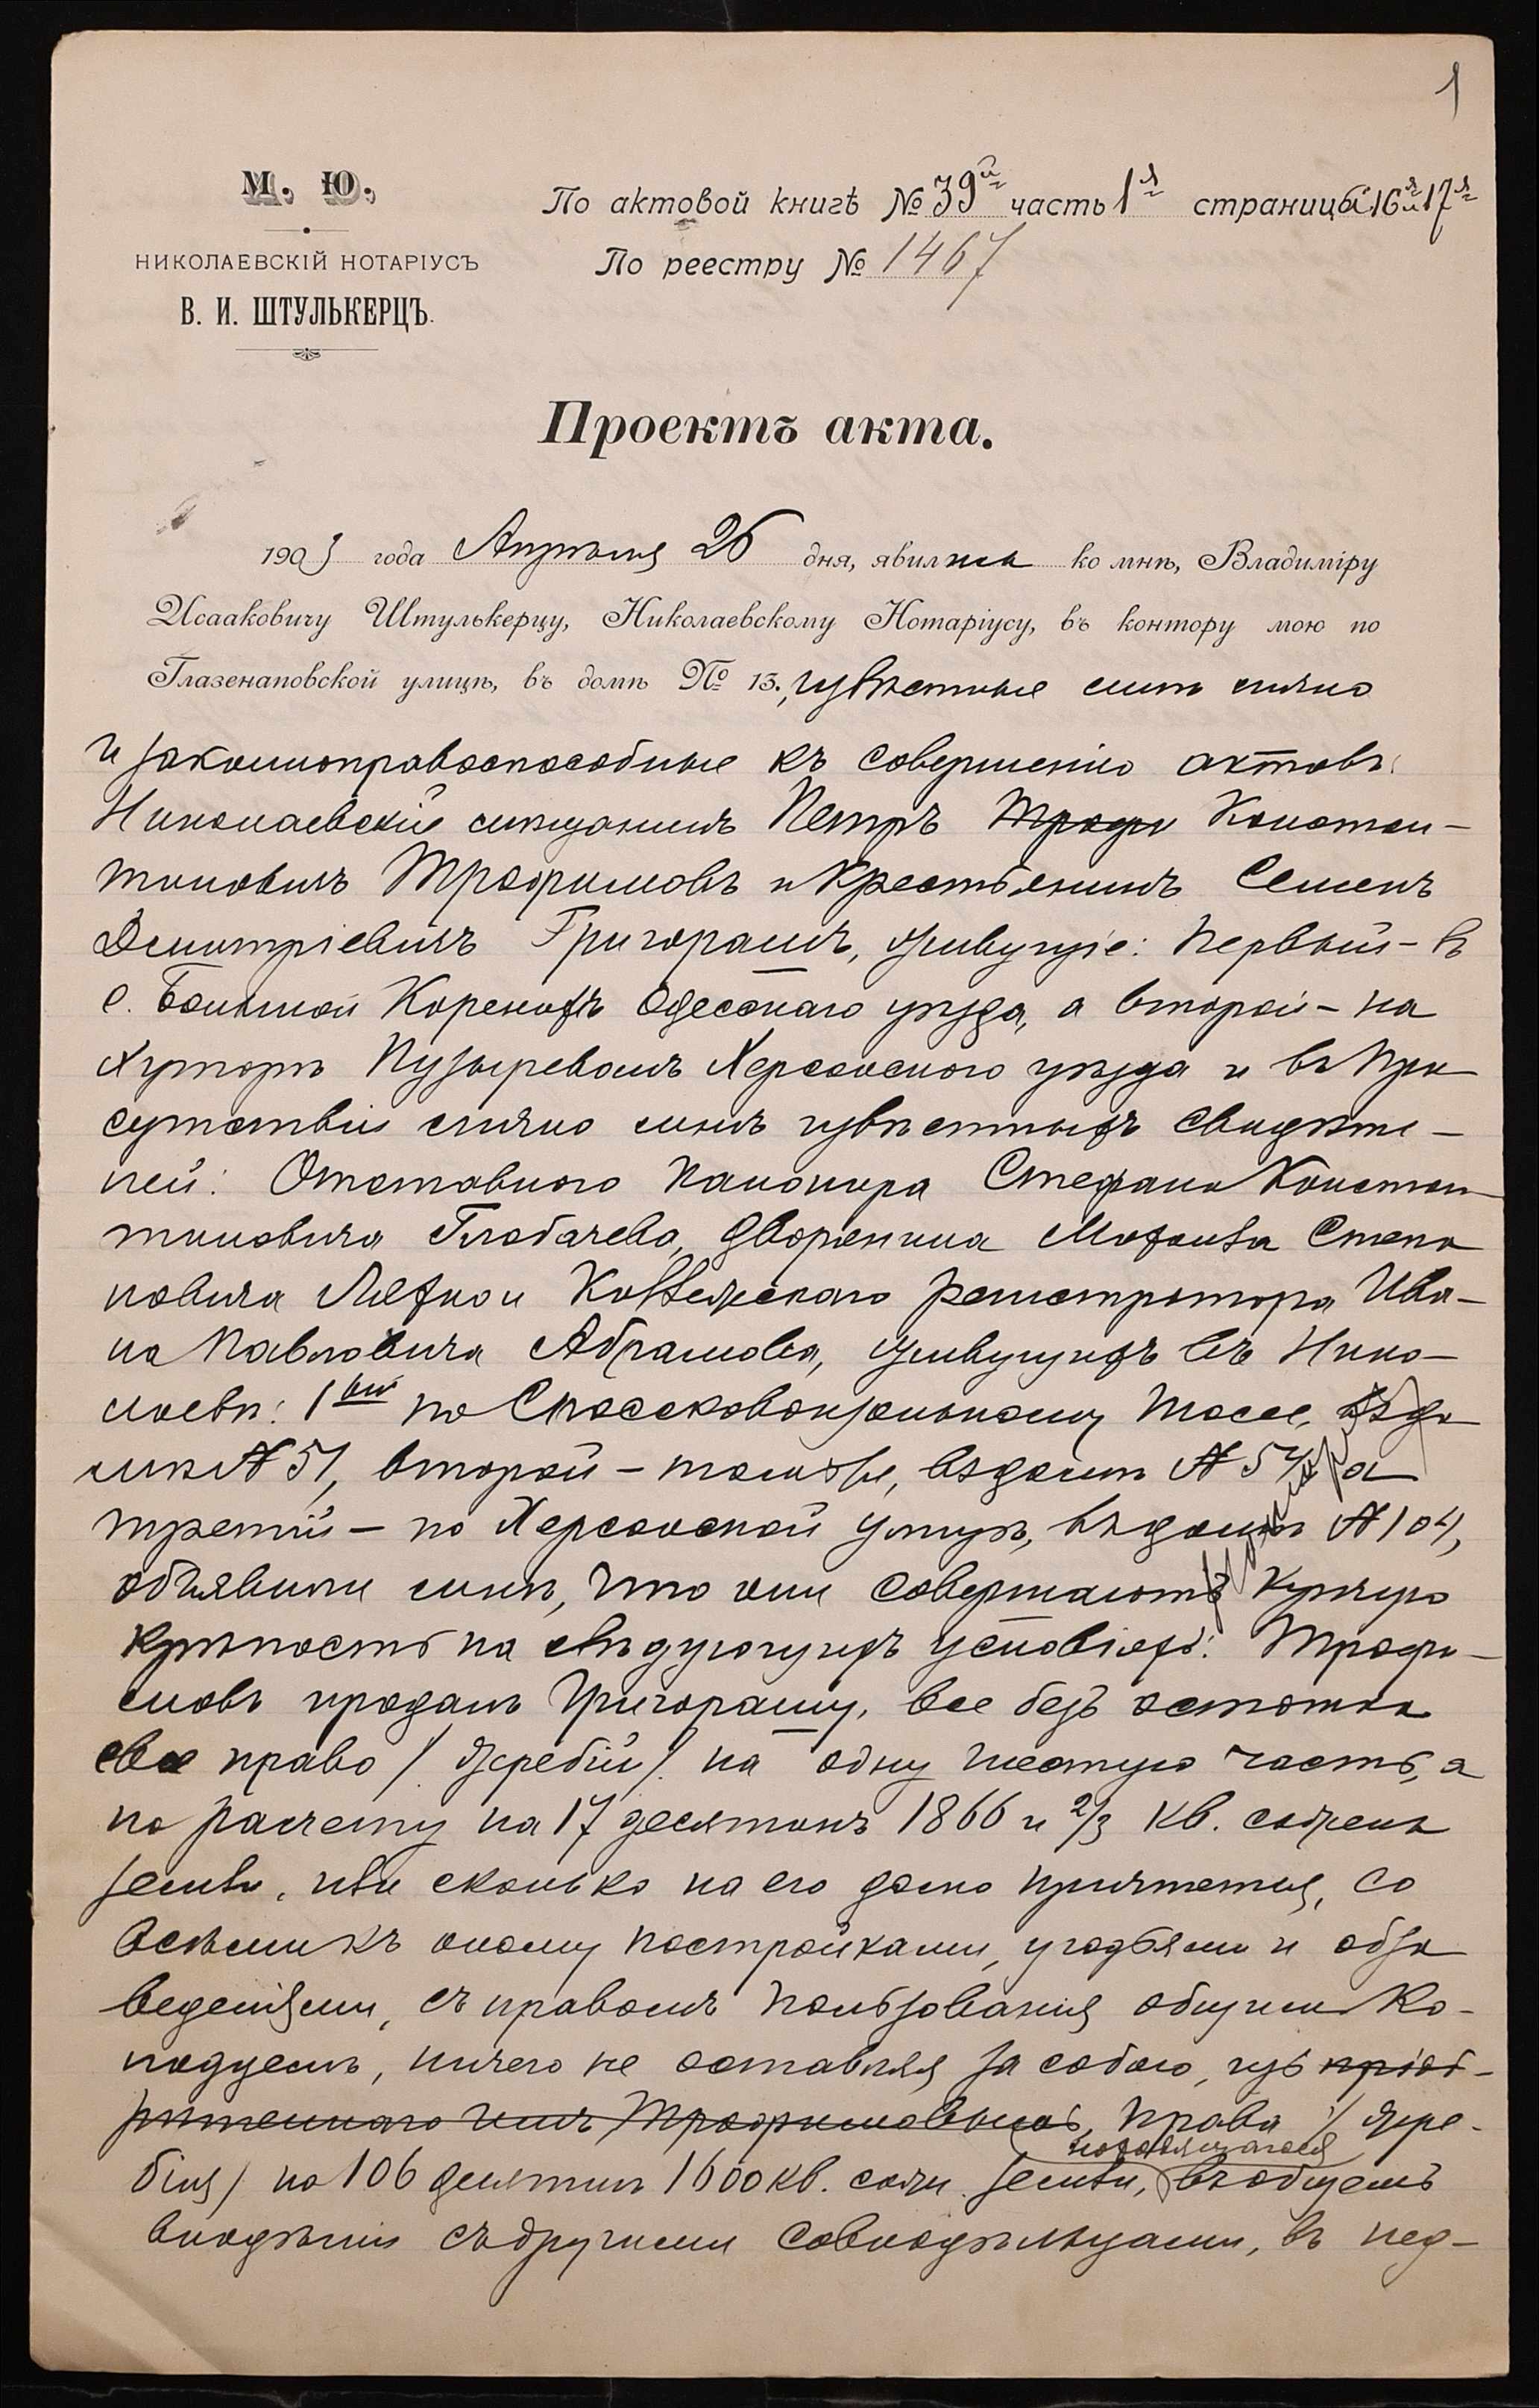 1
М. Ю.
По актовой книгѣ № 39й часть 1я страницы 16я и 17я
НИКОЛАЕВСКІЙ НОТАРІУСЪ
По реестру № 1467
В. И. ШТУЛЬКЕРЦЪ.
Проектъ акта.
1903 года Апрѣля 26 дня, явились ко мнѣ, Владиміру
Исааковичу Штулькерцу, Николаевскому Нотаріусу, въ контору мою по
Глазенаповской улицѣ, въ домѣ № 13., извѣстные мнѣ лично
и законноправоспособные къ совершенію актовъ:
Николаевскій мѣщанинъ Петръ Трофи Констан-
тиновичъ Трофимовъ и Крестьянинъ Семенъ
Дмитріевичъ Григорашъ, живущіе: первый – въ
с. Большой Коренихѣ Одесскаго уѣзда, а второй – на
Хуторѣ Пузыревомъ Херсонскаго уѣзда и въ при
сутствіи лично мнѣ извѣстныхъ свидѣте-
лей: Отставного Канонира Стефана Констан-
тиновича Глобачева, дворянина Матвѣя Степа
новича и Коллежскаго регистратора Ива-
на Павловича Абрамова, живущихъ въ Нико-
лаевѣ: 1вый по Спассковокзальному шоссе, въ до
мѣ № 51, второй – тамъ же, въ домѣ № 54, а
третій – по Херсонской улицѣ, въ домѣ № 104,
объявили мнѣ, что они совершаютъ купчую
крѣпость на слѣдующихъ условіяхъ: Трофи-
мовъ продалъ Григорашу, все безъ остатка
свое право /жребій/ на одну шестую часть, а
по расчету на 17 десятинъ 1866 и 2/3 кв. сажень
земли, или сколько на его долю причтется, со
всѣми къ оному постройками, угодьями и обза
веденіями, съ правомъ пользованія общимъ ко-
лодцемъ, ничего не оставляя за собою, изъ пріоб-
рѣтеннаго имъ, Трофимовымъ, права /жре-
находящагося
бія/ на 106 десятинъ 1600 кв. саж. земли, въ общемъ
владѣніи съ другими совладѣльцами, въ нед-